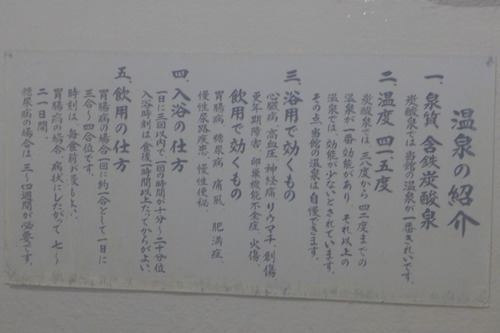 温泉の紹介
一、泉質 含鉄炭酸泉
炭酸泉では当館の温泉が一番きれいです。
二、温度 四一、五度
炭酸泉では、三八度から四二度までの
温泉が一番効能があり、それ以上の
温泉では、効能が少ないとされています。
その点、当館の温泉は自慢できます。
三、浴用で効くもの
心臓病、高血圧、神経痛、リウマチ、創傷
更年期障害、卵巣機能不全症、火傷、
飲用で効くもの
胃腸病、糖尿病、痛風、肥満症、
慢性尿路疾患、慢性便秘、
四、入浴の仕方
一日に三回以内で一回の時間が十分〜二十分位
入浴時刻は食後一時間以上たってからがよい。
五、飲用の仕方
胃腸病の場合一回に約一合として一日に
三合〜四合位です。
時刻は、毎食前が最もよい、
胃腸病の場合、病状にしたがって、七〜
二一日間。
糖尿病の場合は、三〜四週間が必要です。